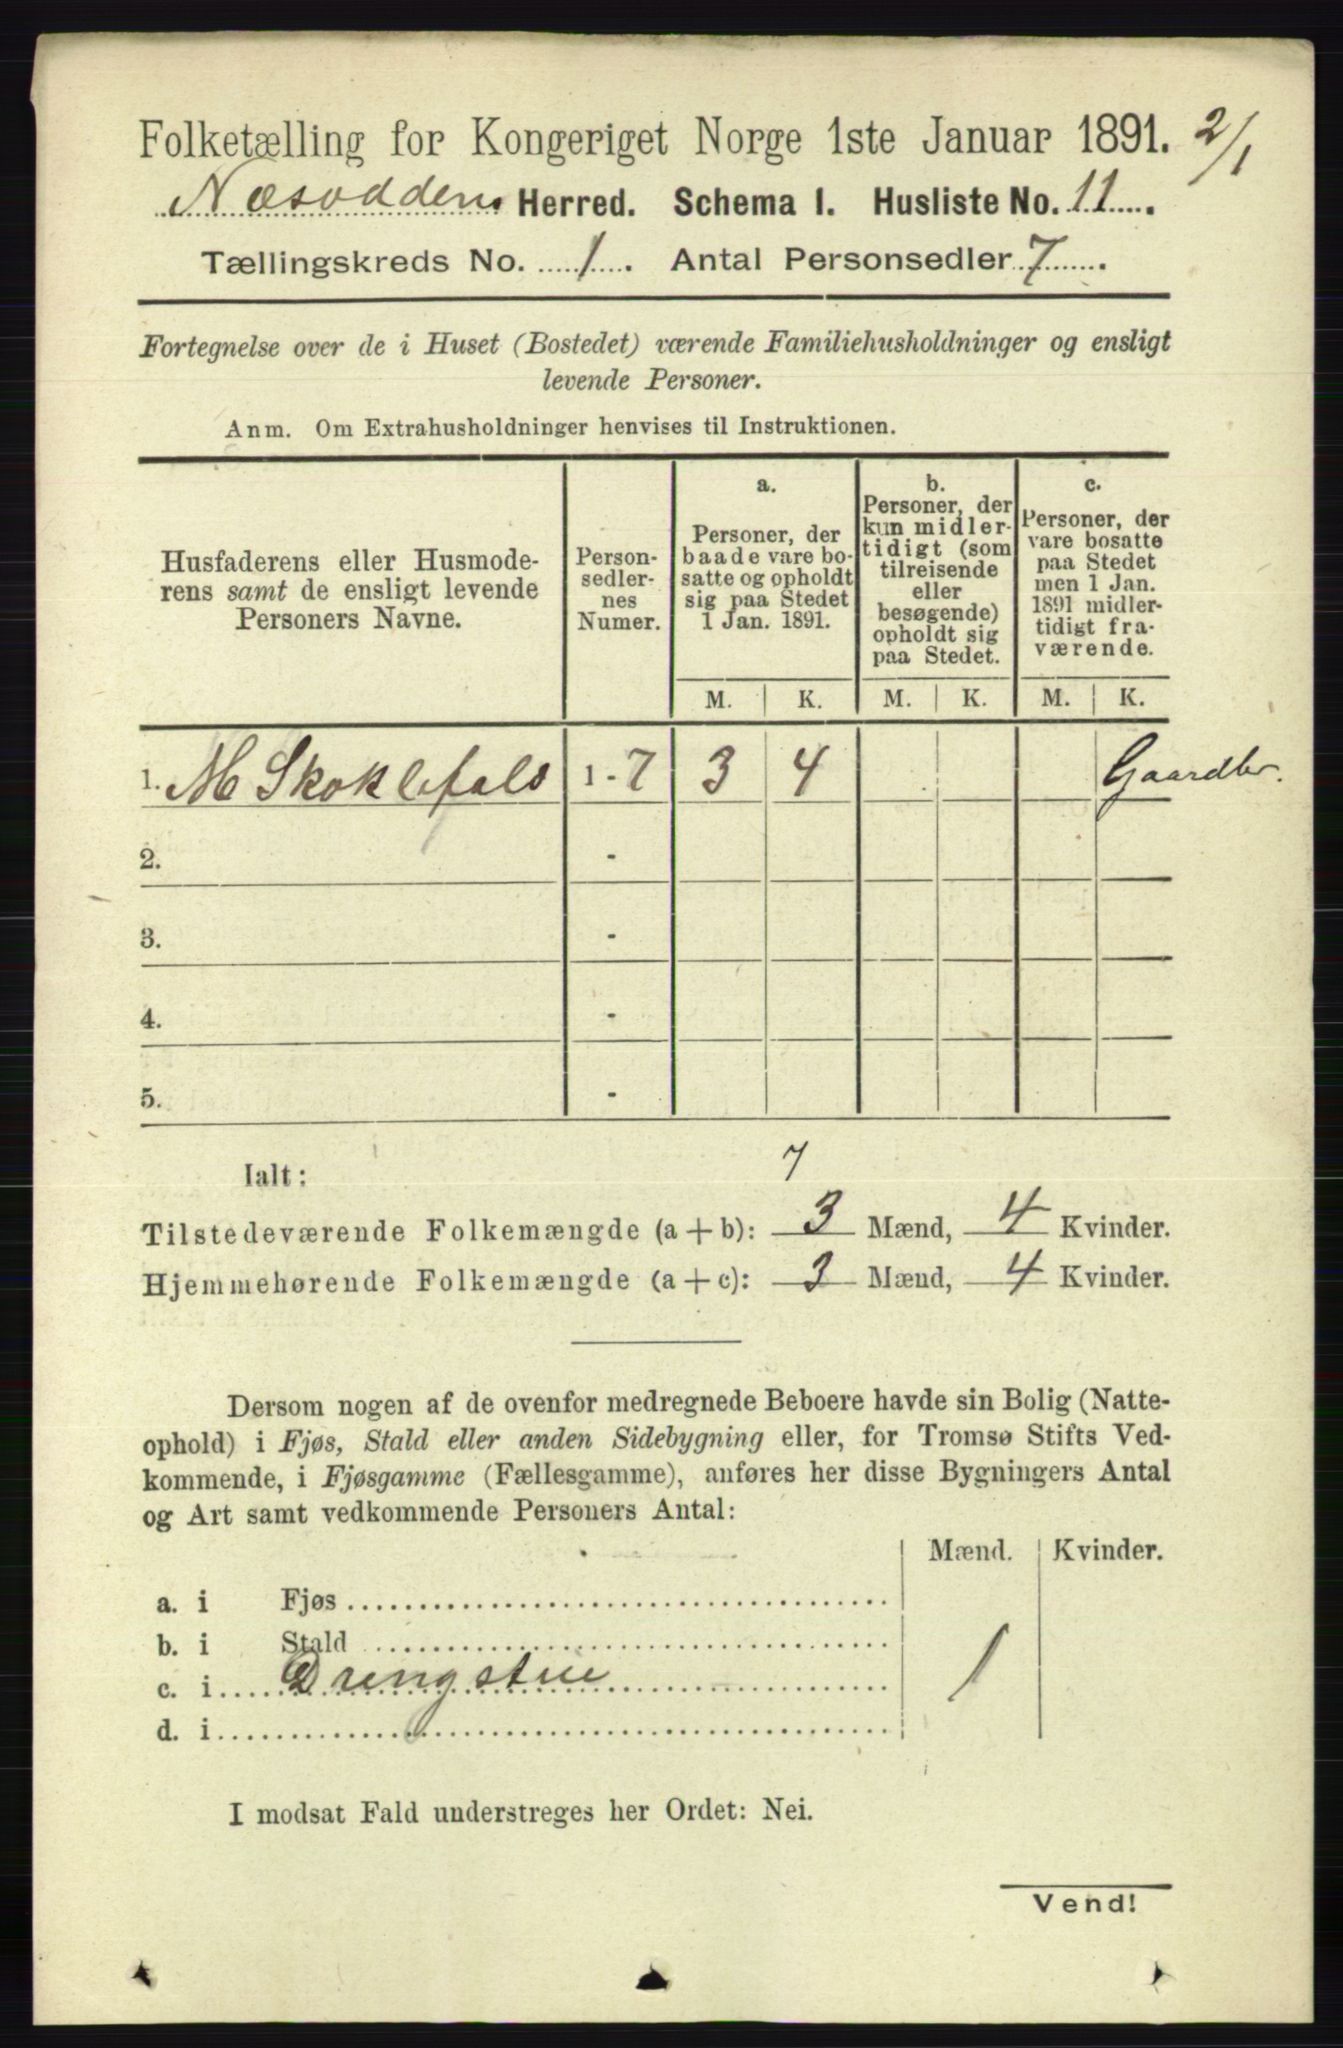 Folketælling for Kongeriget Norge 1ste Januar 1891. 2/1
Næsoddens Herred. Schema 1. Husliste No. 11
Tællingskreds No. 1. Antal Personsedler 7.
Fortegnelse over de i Huset (Bostedet) værende Familiehusholdninger og ensligt
levende Personer.
Anm. Om Extrahusholdninger henvises til Instruktionen.
Husfaderens eller Husmode-
rens samt de ensligt levende
Personers Navne.
Person-
sedler-
nes
Numer.
a.
Personer, der
baade vare bo-
satte og opholdt
sig paa Stedet
1 Jan. 1891.
b.
Personer, der
kun midler-
tidigt (som
tilreisende
eller
besøgende)
opholdt sig
paa Stedet.
c.
Personer, der
vare bosatte
paa Stedet
men 1 Jan.
1891 midler-
tidigt fra-
værende.
M. K. M. K. M. K.
1. M Skoklefald 1 - 7 3 4 Gaardbr.
2. -
3. -
4. -
5. -
7
Ialt:
Tilstedeværende Folkemængde (a + b): 3 Mænd, 4 Kvinder.
Hjemmehørende Folkemængde (a + c): 3 Mænd, 4 Kvinder.
Dersom nogen af de ovenfor medregnede Beboere havde sin Bolig (Natte-
ophold) i Fjøs, Stald eller anden Sidebygning eller, for Tromsø Stifts Ved-
kommende, i Fjøsgamme (Fællesgamme), anføres her disse Bygningers Antal
og Art samt vedkommende Personers Antal:
Mænd. Kvinder.
a. i Fjøs
b. i Stald
c. i Drengstue 1
d. i
I modsat Fald understreges her Ordet: Nei.
Vend!